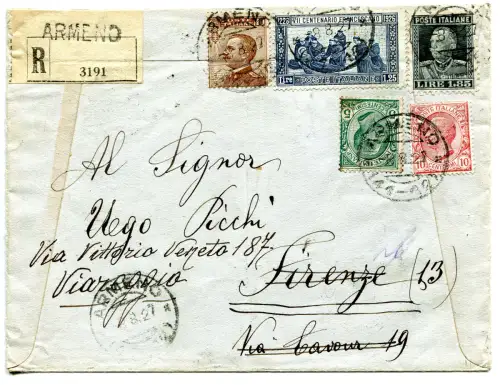 ARMENO
R
3191
ARMENO
1226 VII CENTENARIO FRANCESCANO 1926
LIRE POSTE ITALIANE 1.25
POSTE ITALIANE
LIRE 1.85
5
POSTE ITALIANE
10 10
ARMENO
Al Signor
Ugo Picchi
Via Vittorio Veneto 187
Viareggio
Firenze (13)
Via Cavour 19
ARMENO
8.27